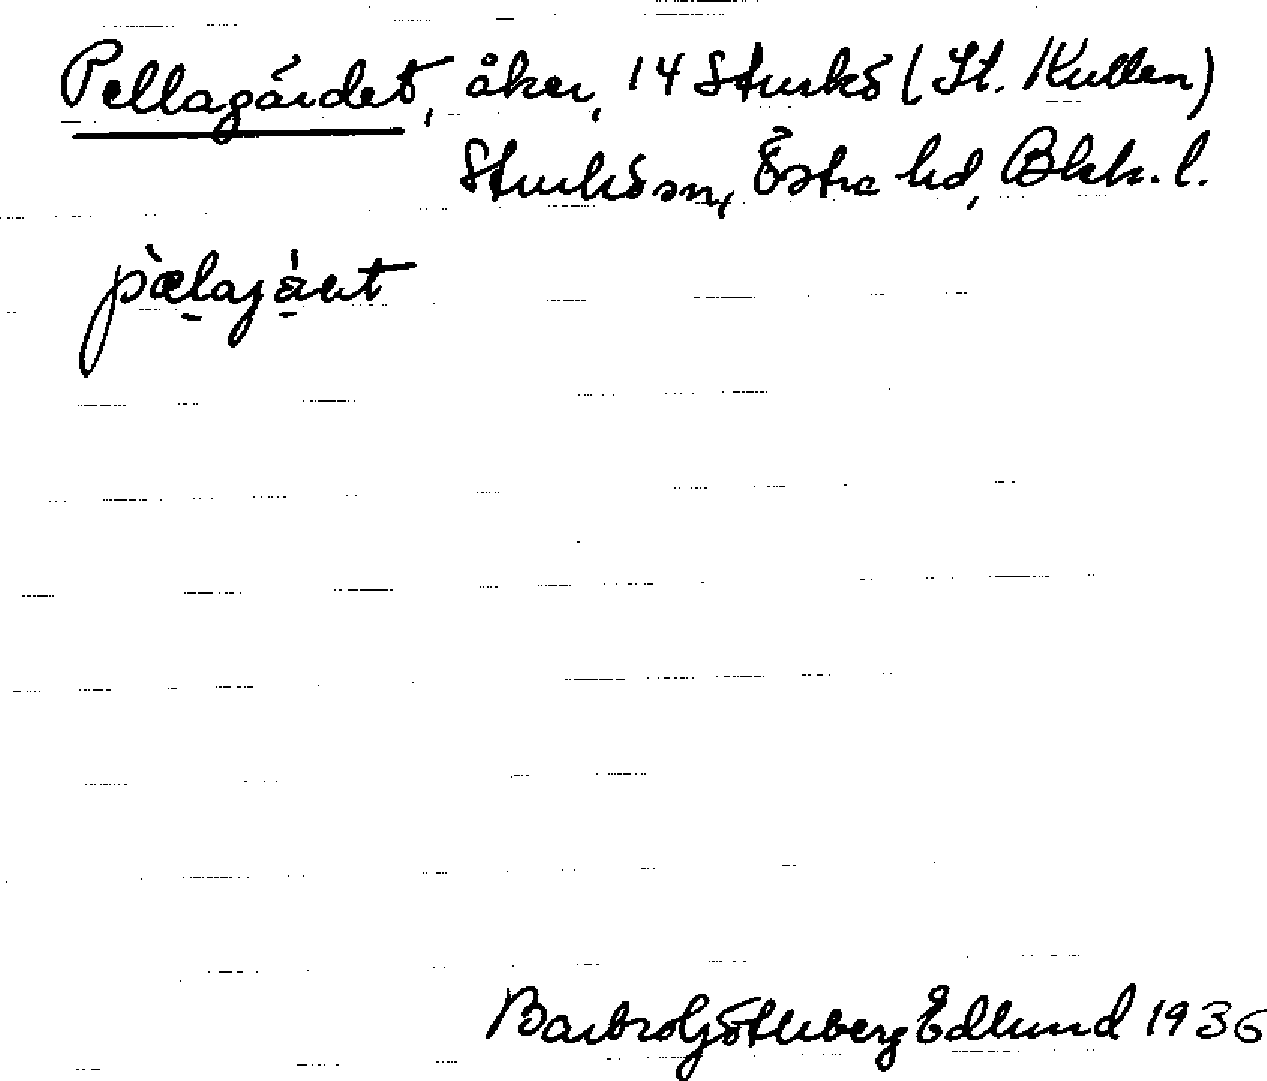 Pellagärdet, åker, 14 Sturkö (St. Kullen)
Sturkö sn, Östra hd, Blek. l.
Barbro Götherberg Edlund 1936